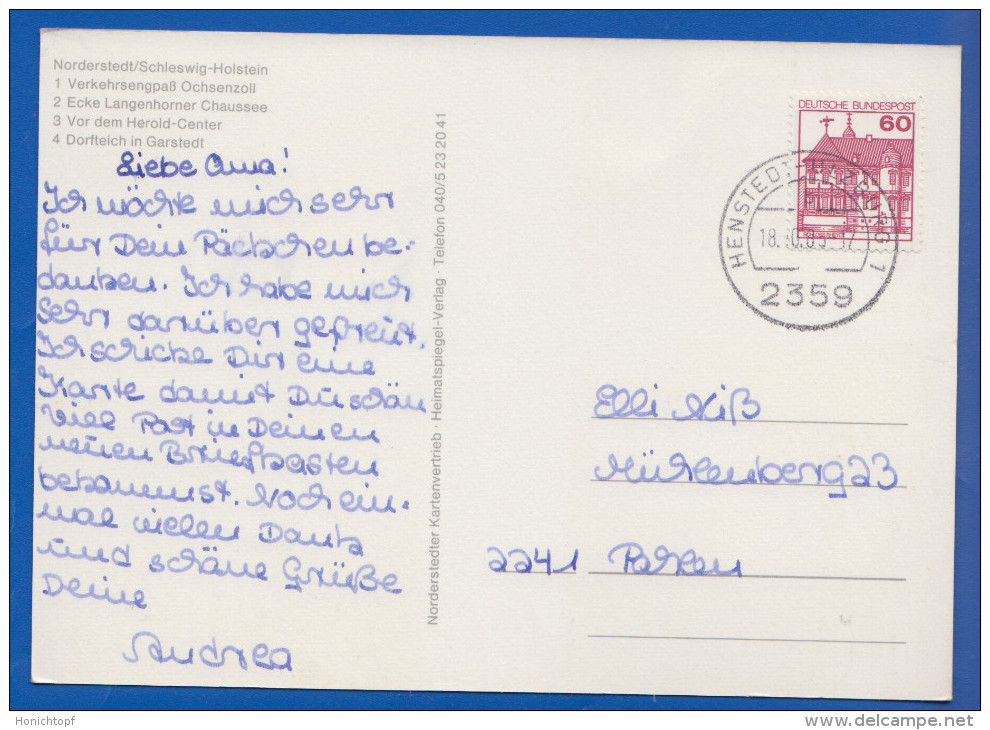 Norderstedt/Schleswig-Holstein
1 Verkehrsengpaß Ochsenzoll
2 Ecke Langenhorner Chaussee
3 Vor dem Herold-Center
4 Dorfteich in Garstedt
Liebe Oma!
Ich möchte mich sehr
für Dein Päckchen be-
danken. Ich habe mich
sehr darüber gefreut.
Ich schicke Dir eine
Karte damit Du schön
viel Post in Deinen
neuen Briefkasten
bekommst. Noch ein-
mal vielen Dank
und schöne Grüße
Deine
Andrea
Norderstedter Kartenvertrieb · Heimatspiegel-Verlag · Telefon 040/5 23 20 41
DEUTSCHE BUNDESPOST
60
HENSTEDT-ULZBURG 1
2359
Elli Niß
Mühlenberg 23
2241
Honichtopf
www.delcampe.net